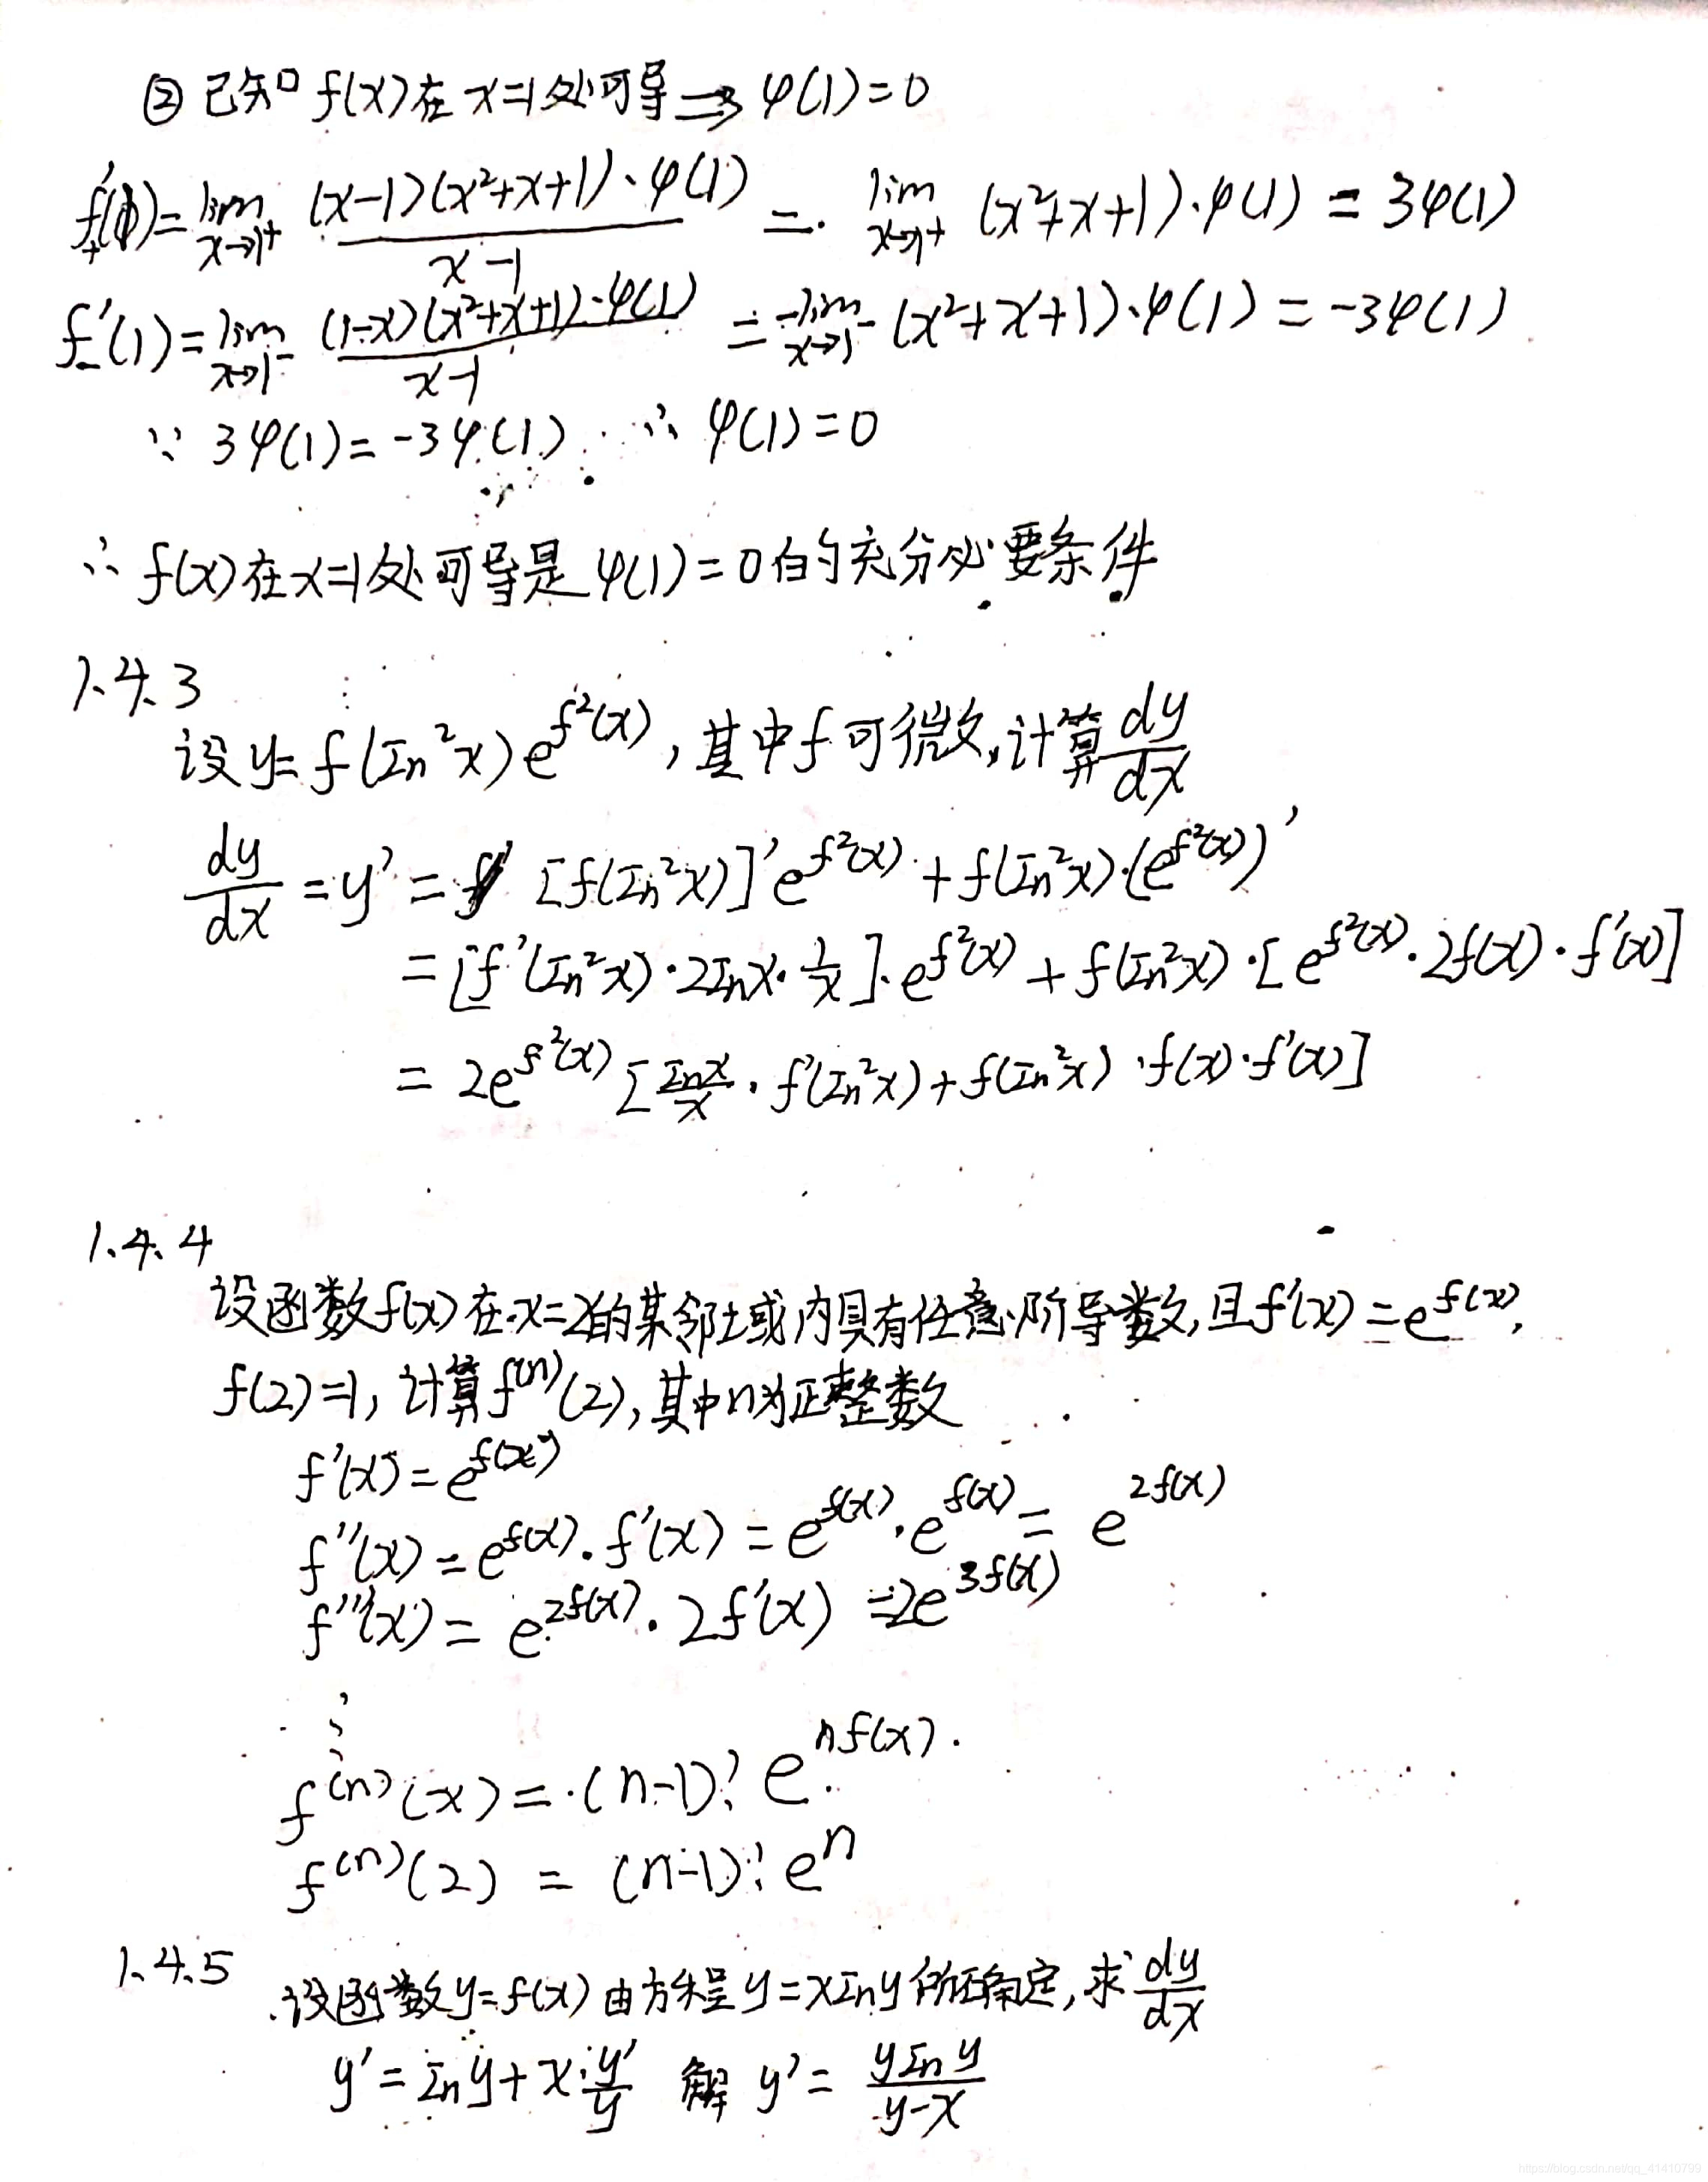 ② 已知 f(x)在 x=1处可导 ⇒ φ(1)=0
f₊'(1)=lim_{x→1⁺} \frac{(x-1)(x²+x+1)·φ(1)}{x-1} = lim_{x→1⁺} (x²+x+1)·φ(1) = 3φ(1)
f₋'(1)=lim_{x→1⁻} \frac{(1-x)(x²+x+1)·φ(1)}{x-1} = -lim_{x→1⁻} (x²+x+1)·φ(1) = -3φ(1)
∵ 3φ(1)=-3φ(1) ∴ φ(1)=0
∴ f(x)在x=1处可导是 φ(1)=0的充分必要条件
1.4.3
设 y=f(In²x)e^{f²(x)}, 其中f可微,计算\frac{dy}{dx}
\frac{dy}{dx}=y'= [f(In²x)]'e^{f²(x)}+f(In²x)·(e^{f²(x)})'
=[f'(In²x)·2Inx·\frac{1}{x}]·e^{f²(x)}+f(In²x)·[e^{f²(x)}·2f(x)·f'(x)]
=2e^{f²(x)}[\frac{Inx}{x}·f'(In²x)+f(In²x)·f(x)·f'(x)]
1.4.4
设函数f(x)在x=2的某邻域内具有任意阶导数,且f'(x)=e^{f(x)},
f(2)=1, 计算f^{(n)}(2), 其中n为正整数
f'(x)=e^{f(x)}
f''(x)=e^{f(x)}·f'(x)=e^{f(x)}·e^{f(x)}=e^{2f(x)}
f'''(x)=e^{2f(x)}·2f'(x)=2e^{3f(x)}
⋮
f^{(n)}(x)=(n-1)!e^{nf(x)}
f^{(n)}(2)=(n-1)!e^n
1.4.5
设函数y=f(x)由方程y=xIny所确定,求\frac{dy}{dx}
y'=Iny+x·\frac{y'}{y} 解 y'=\frac{yIny}{y-x}
https://blog.csdn.net/qq_41410799